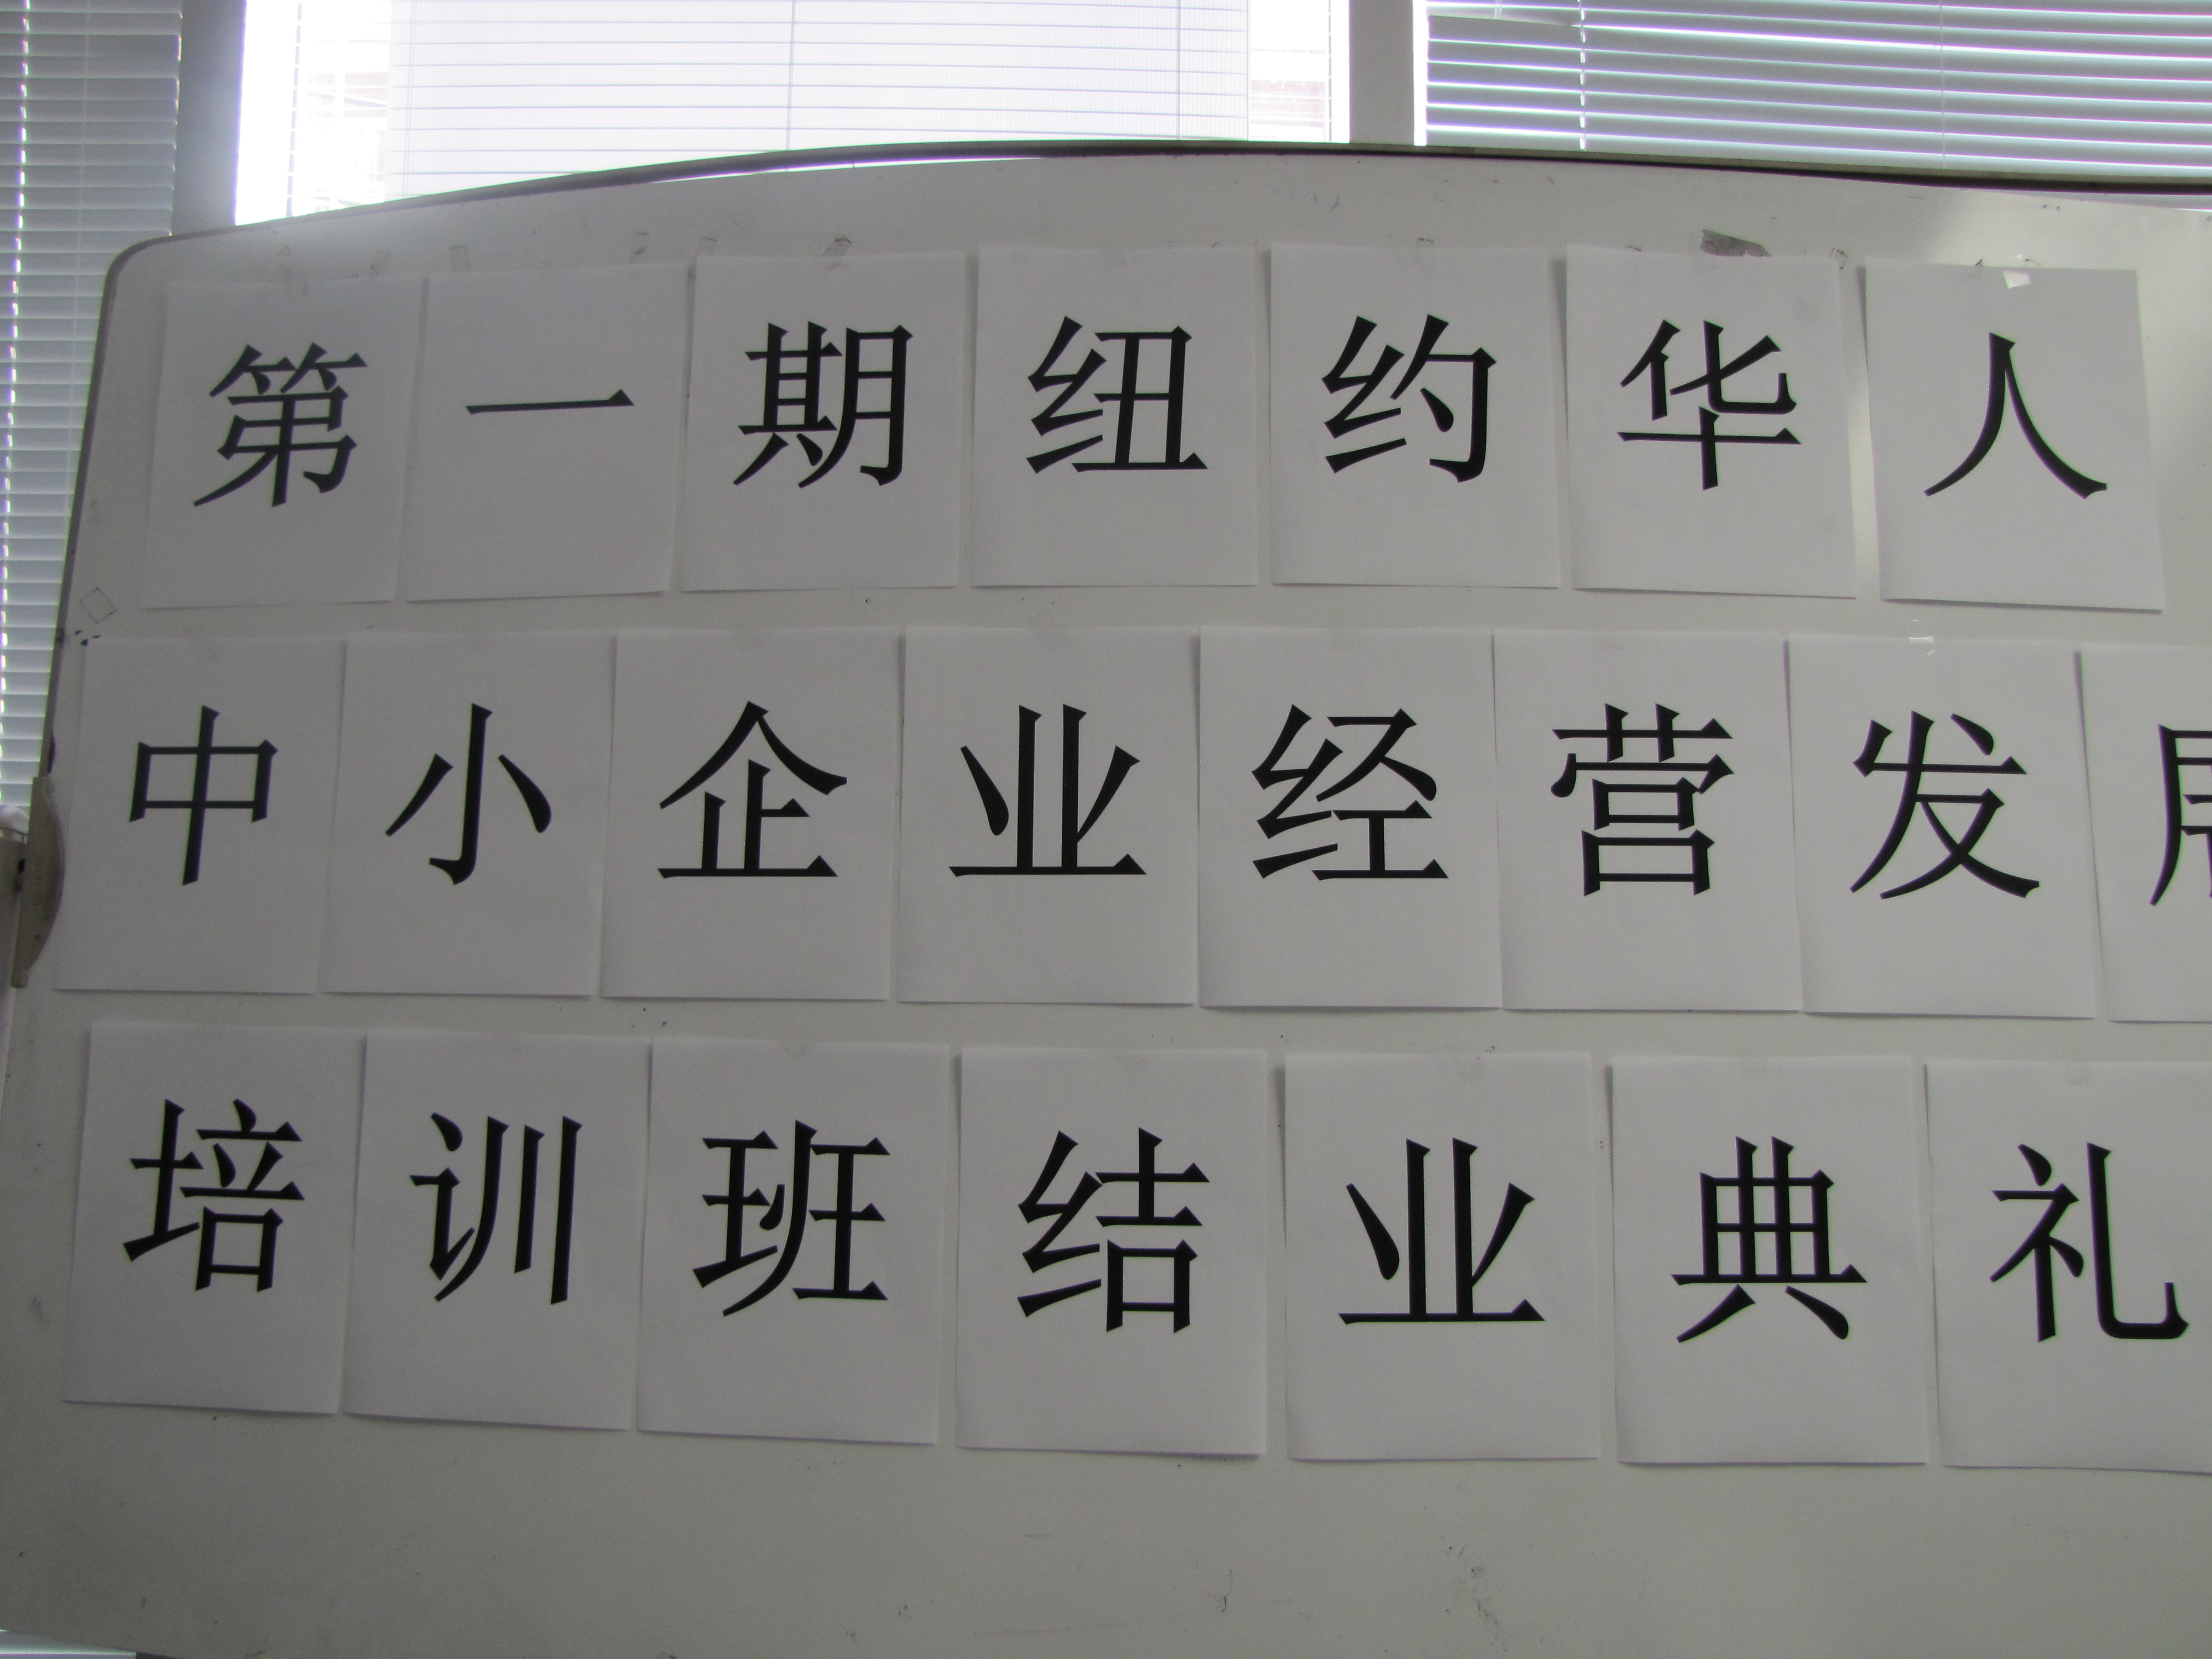 第一期纽约华人
中小企业经营发
培训班结业典礼